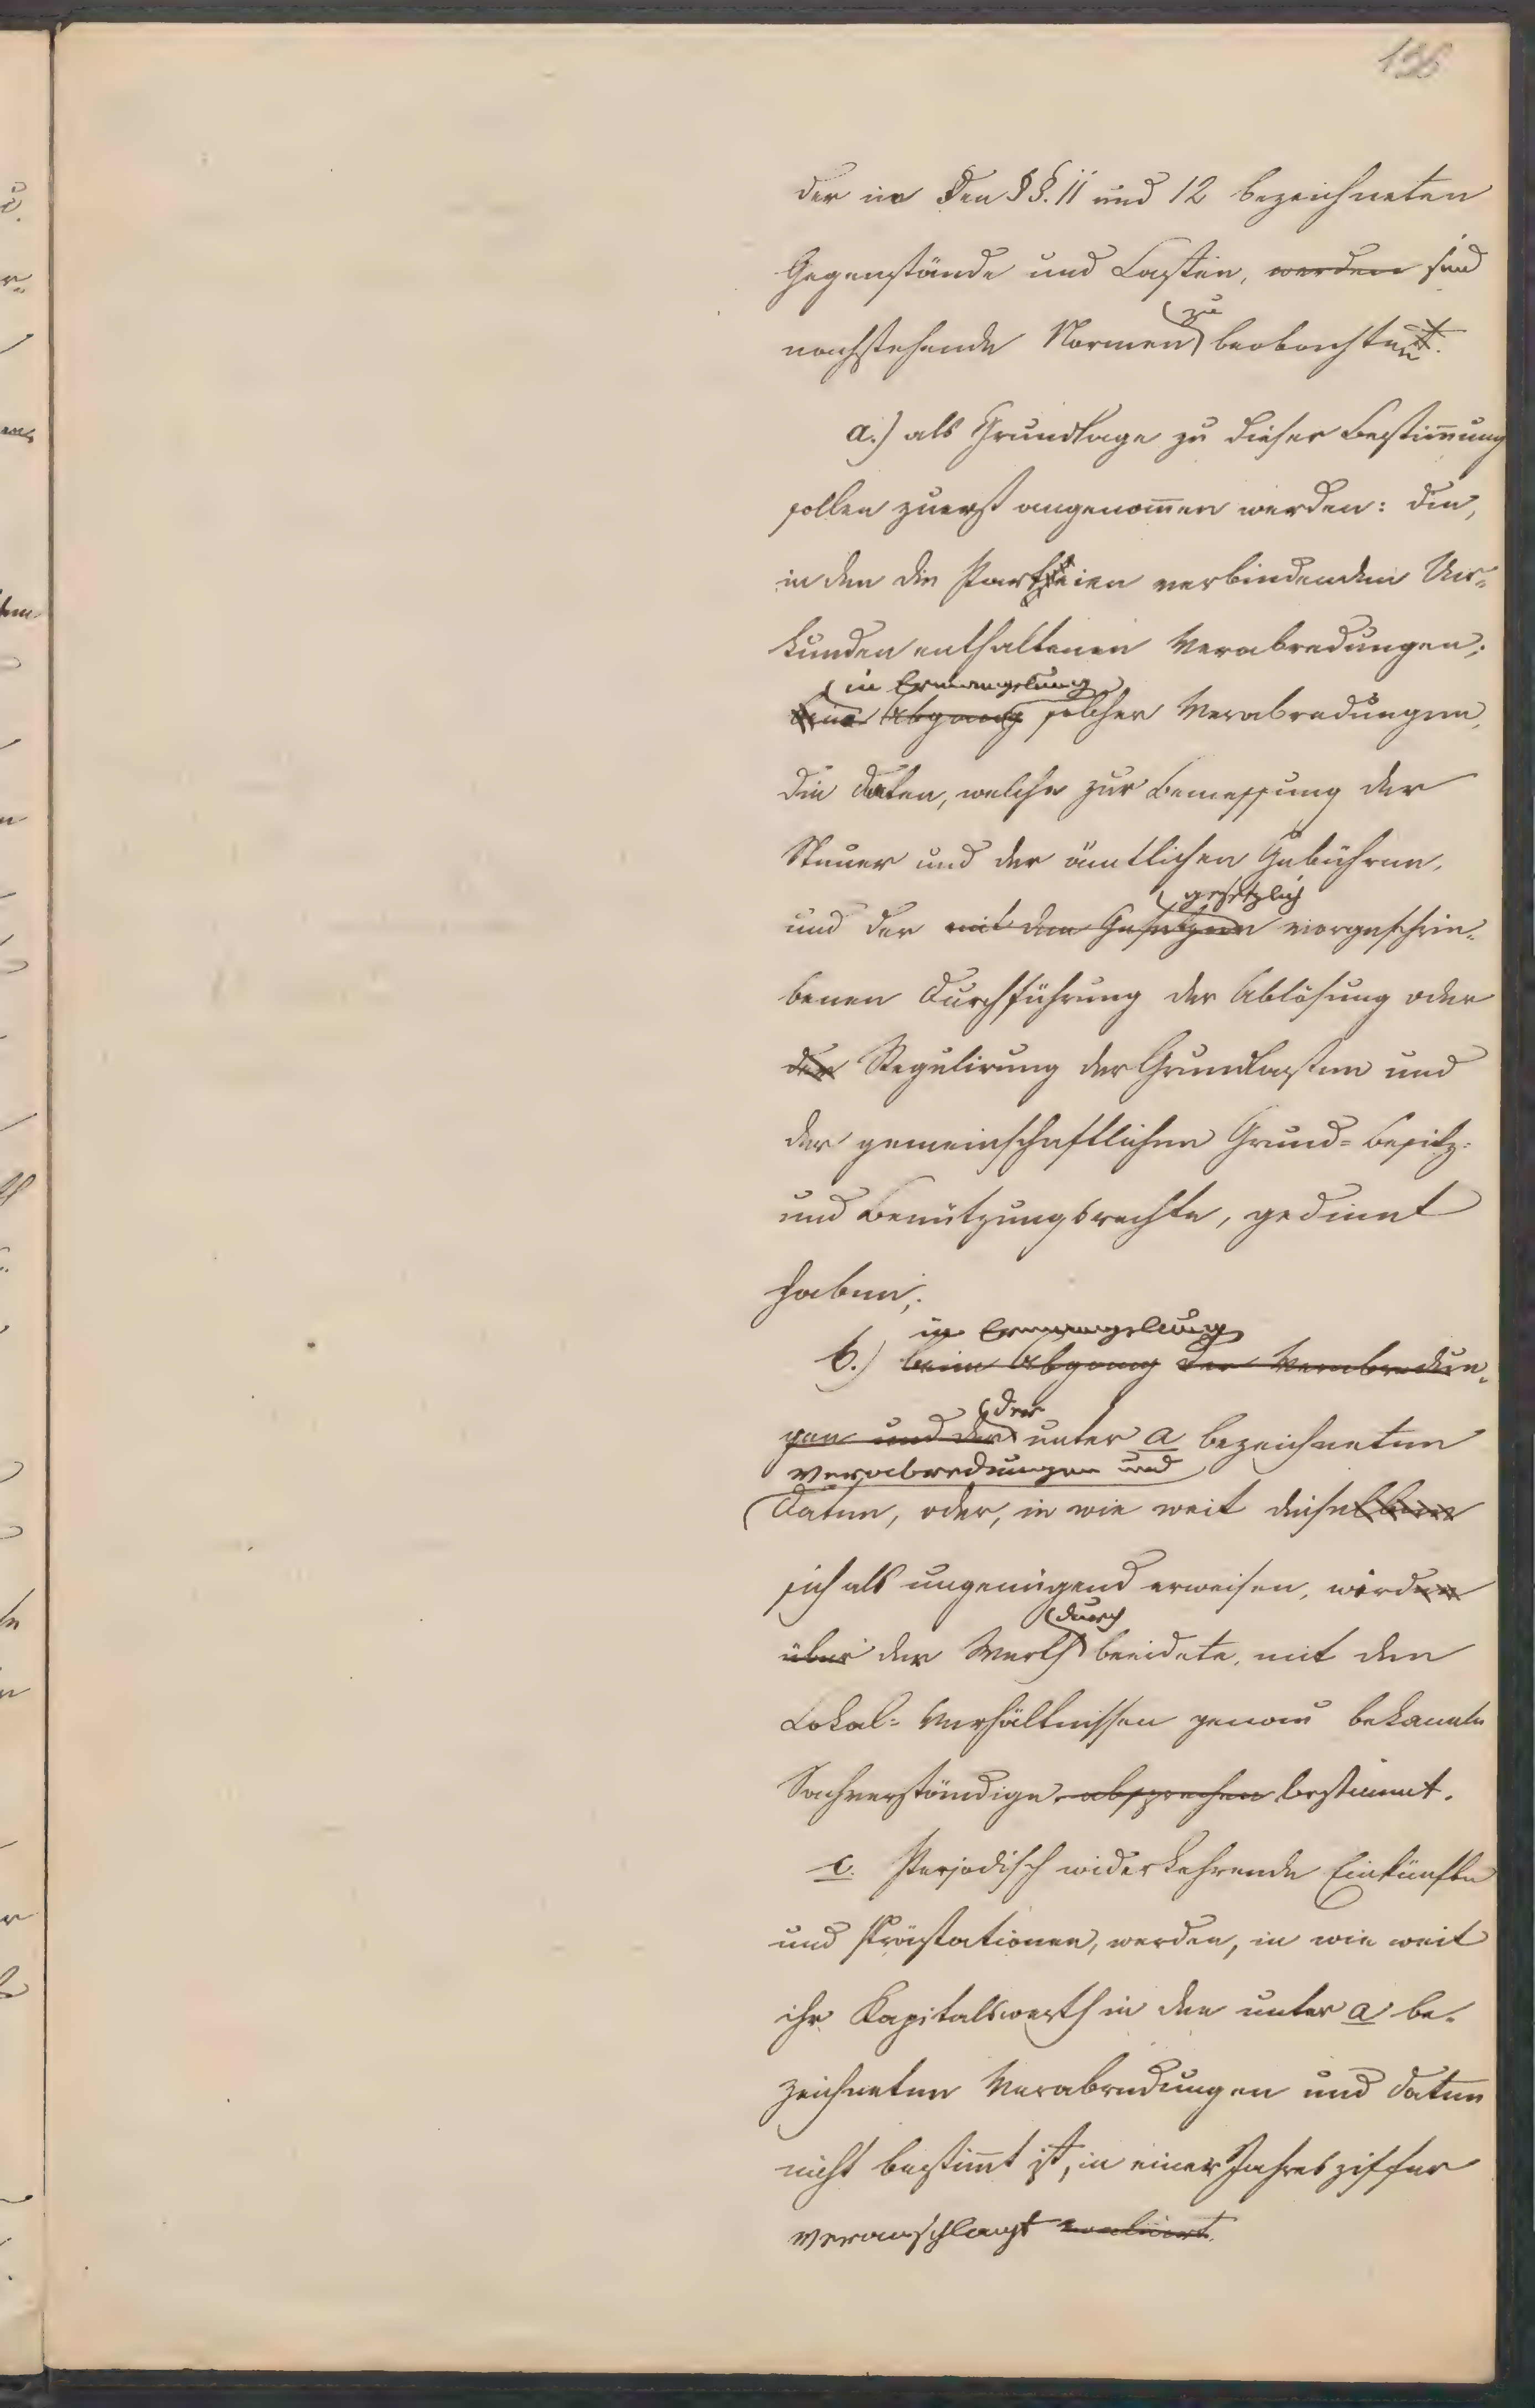 136
der in den §§. 11 und 12 bezeichneten
Gegenstände und Lasten, werden sind
zu
nachstehende Normen beobachten.
a.) als Grundlage zu dieser Bestim̄ung
sollen zuerst angenom̄en werden: die,
in den die Partheien verbindenden Ur-
kunden enthaltenen Verabredungen;
in Ermangelung
beim Abgang solcher Verabredungen,
die Daten, welche zur Bemessung der
Steuer und der ämtlichen Gebühren,
gesetzlich
und der mit den Gesetzen vorgeschrie-
benen Durchführung der Ablösung oder
der Regulirung der Grundlasten und
der gemeinschaftlichen Grund-Besitz-
und Benützungsrechte, gedient
haben;
in Ermangelung
b.) beim Abgang der Verabredun-
der
gen und der unter a bezeichneten
Verabredungen und
Daten, oder, in wie weit dieselben
sich als ungenügend erweisen, werden
durch
über der Werth beeidete, mit den
Lokal-Verhältnissen genau bekannte
Sachverständige absprechen bestimmt.
c. Perjodisch widerkehrende Einkünfte
und Prästationen, werden, in wie weit
ihr Kapitalswerth in den unter a be-
zeichneten Verabredungen und Daten
nicht bestim̄t ist, in einer Jahresziffer
veranschlagt evaluirt.